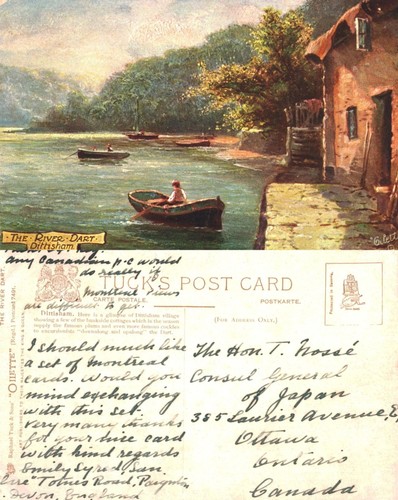 THE RIVER DART.
DITTISHAM.
any Canadian p.c would
do really if
Montreal views
are difficult to get.
TUCK'S POST CARD
CARTE POSTALE.
(FOR ADDRESS ONLY.)
Dittisham. Here is a glimpse of Dittisham village
showing a few of the lookside cottages which in the season
supply the famous plums and even more famous cockles
to excursionists "steamboating and upalong" the Dart.
THE RIVER DART.
"OILETTE"
I should much like
a set of Montreal
cards. Would you
mind exchanging
with this set.
Very many thanks
for your nice card
with kind regards
Emily Syred, San
Totnes Road, Paignton
Devon, England
The Hon. T. Nossé
Consul General
of Japan
385 Laurier Avenue, E,
Ottawa
Ontario
Canada